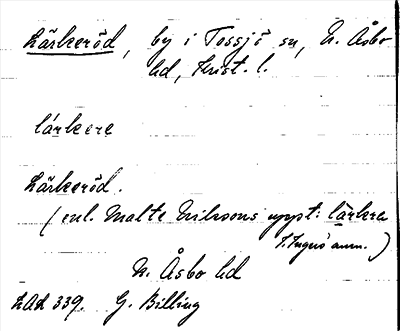 Lärkeröd, by i Tossjö sn, N. Åsbo
hd, Krist. l.
lárkere
Lärkeröd.
(enl. Malte Nilssons uppt: lärkra
S. Ingers anm.)
N. Åsbo hd
LAL 339. G. Billing